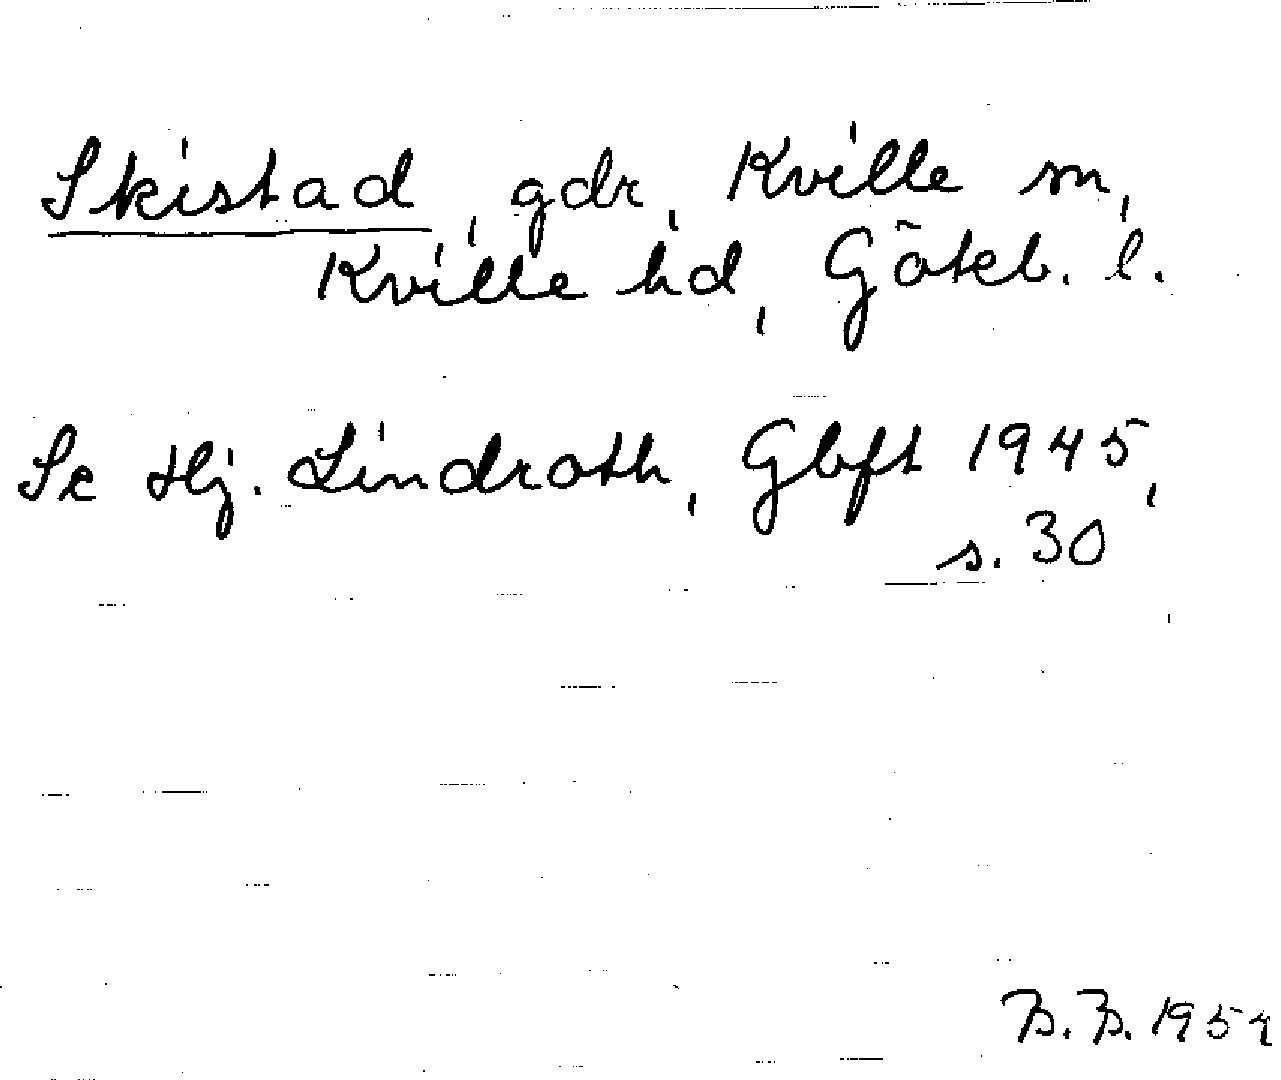 Skistad, gdr, Kville sn,
Kville hd, Göteb. l.
Se Hj. Lindroth, Gbft 1945,
s. 30
B. B. 1954